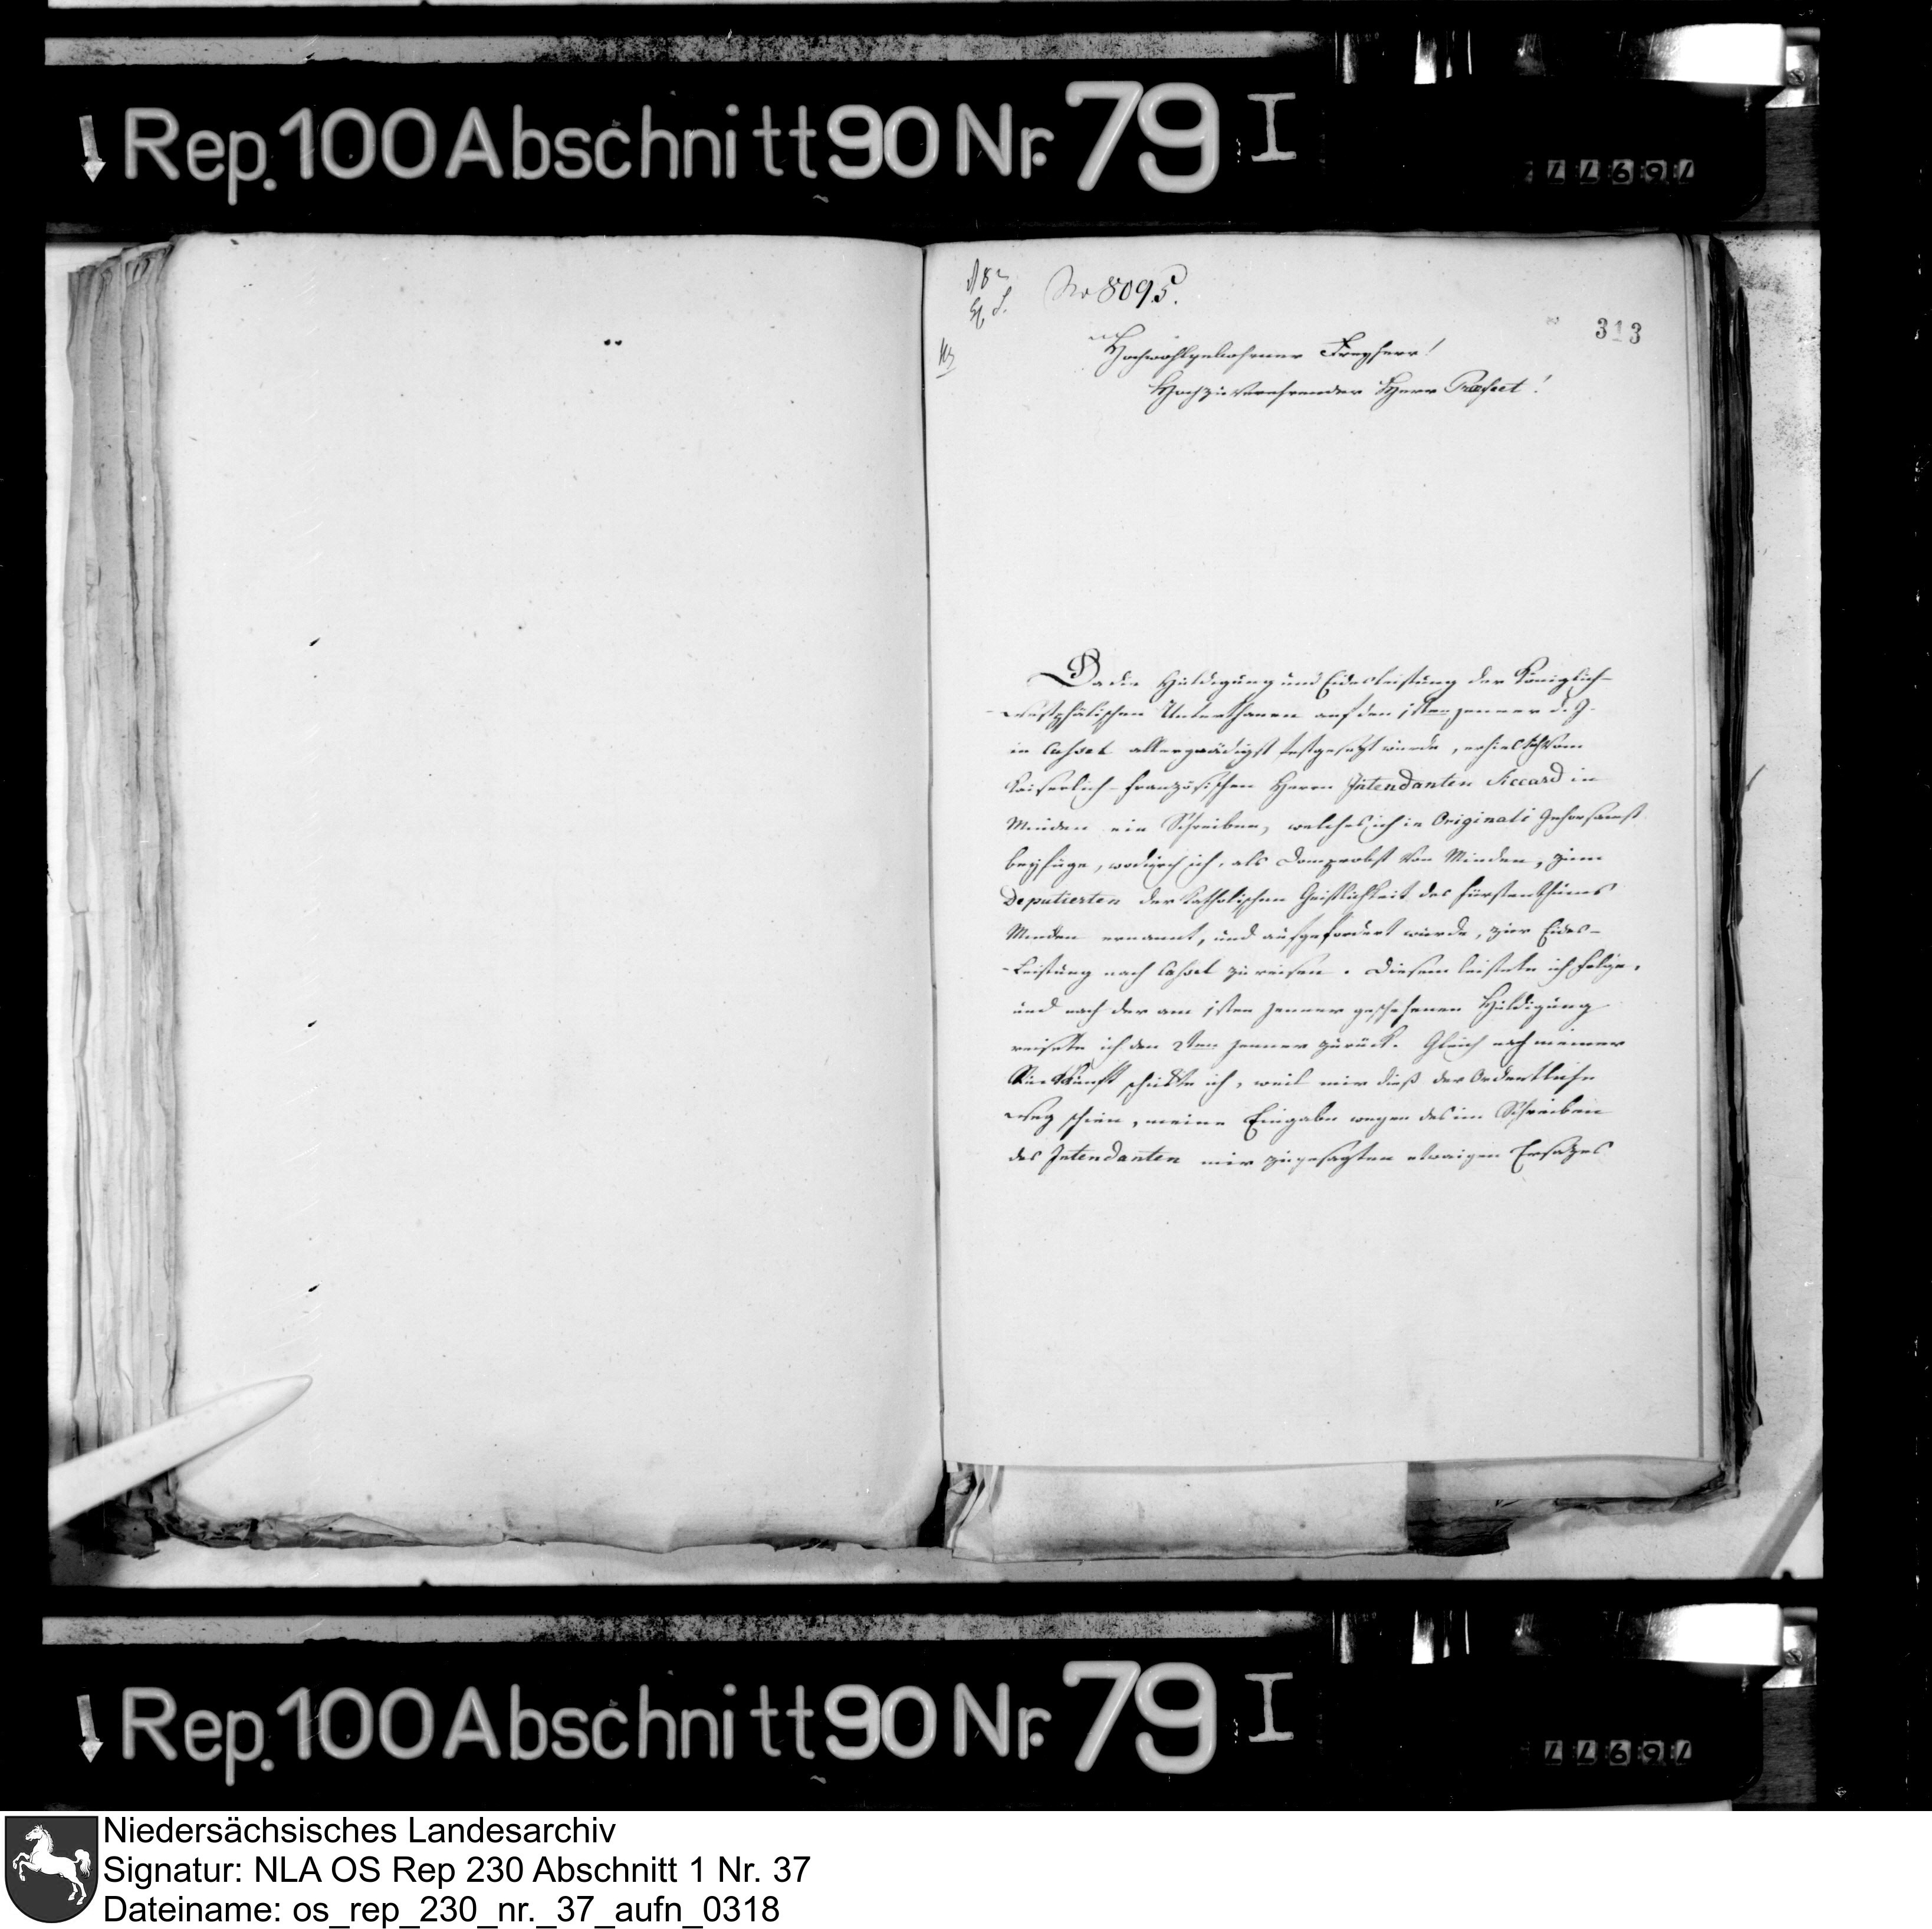 Rep. 100 Abschnitt 90 Nr. 79 I
No 8095.
313
Hochwohlgebohrner Freyherr!
Hochzuverehrender Herr Praefect!
Da die Huldigung und Eidesleistung der Königlich-
westphälischen Unterthanen auf den 1sten Jenner d. J.
in Cassel allergnädigst festgesetzt wurde, erhielt ich vom
Kaiserlich-französischen Herrn Intendanten Siccard in
Minden ein Schreiben, welches ich in Originali gehorsamst
beyfüge, wodurch ich, als Domprobst von Minden, zum
Deputierten der Katholischen Geistlichkeit des Fürstenthums
Minden ernannt, und aufgefordert wurde, zur Eides-
-Leistung nach Cassel zu reisen. Diesem leistete ich Folge,
und nach der am 1sten Jenner geschehenen Huldigung
reisete ich den 2ten Jenner zurück. Gleich nach meiner
Rückkunft schickte ich, weil mir dieß der Ordentliche
Weg schien, meine Eingabe wegen des im Schreiben
des Intendanten mir zugesagten etwaigen Ersatzes
Rep. 100 Abschnitt 90 Nr. 79 I
Niedersächsisches Landesarchiv
Signatur: NLA OS Rep 230 Abschnitt 1 Nr. 37
Dateiname: os_rep_230_nr._37_aufn_0318